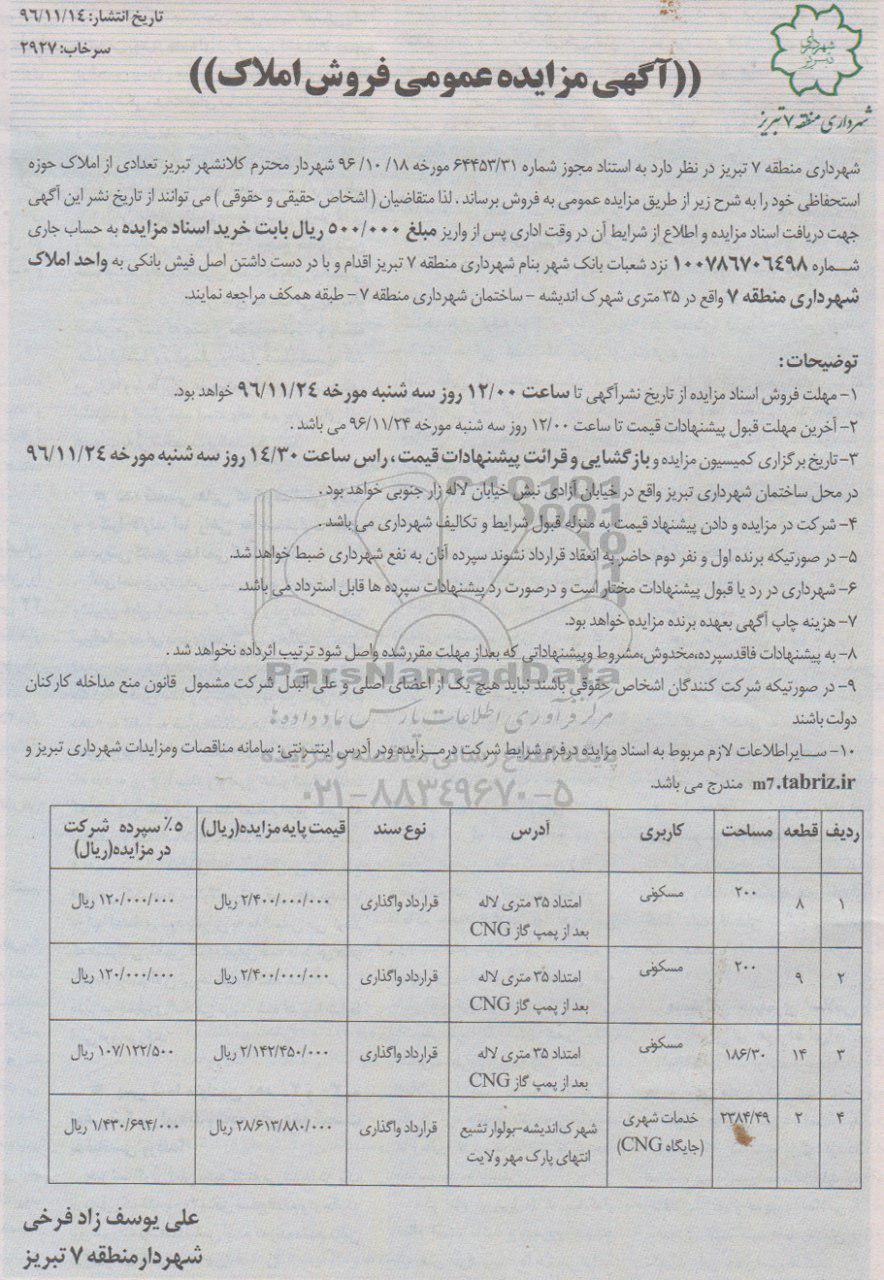 تاریخ انتشار: ۹۶/۱۱/۱۴
سرخاب: ۲۹۲۷
شهرداری تبریز
شهرداری منطقه ۷ تبریز
((آگهی مزایده عمومی فروش املاک))
شهرداری منطقه ۷ تبریز در نظر دارد به استناد مجوز شماره ۶۴۴۵۳/۳۱ مورخه ۱۸/ ۱۰/ ۹۶ شهردار محترم کلانشهر تبریز تعدادی از املاک حوزه
استحفاظی خود را به شرح زیر از طریق مزایده عمومی به فروش برساند . لذا متقاضیان ( اشخاص حقیقی و حقوقی ) می توانند از تاریخ نشر این آگهی
جهت دریافت اسناد مزایده و اطلاع از شرایط آن در وقت اداری پس از واریز مبلغ ۵۰۰/۰۰۰ ریال بابت خرید اسناد مزایده به حساب جاری
شـــماره ۱۰۰۷۸۶۷۰۶۴۹۸ نزد شعبات بانک شهر بنام شهرداری منطقه ۷ تبریز اقدام و با در دست داشتن اصل فیش بانکی به واحد املاک
شهرداری منطقه ۷ واقع در ۳۵ متری شهرک اندیشه – ساختمان شهرداری منطقه ۷ – طبقه همکف مراجعه نمایند.
توضیحات :
۱- مهلت فروش اسناد مزایده از تاریخ نشرآگهی تا ساعت ۱۲/۰۰ روز سه شنبه مورخه ۹۶/۱۱/۲۴ خواهد بود.
۲- آخرین مهلت قبول پیشنهادات قیمت تا ساعت ۱۲/۰۰ روز سه شنبه مورخه ۹۶/۱۱/۲۴ می باشد .
۳- تاریخ برگزاری کمیسیون مزایده و بازگشایی و قرائت پیشنهادات قیمت ، راس ساعت ۱۴/۳۰ روز سه شنبه مورخه ۹۶/۱۱/۲۴
در محل ساختمان شهرداری تبریز واقع در خیابان آزادی نبش خیابان لاله زار جنوبی خواهد بود .
۴- شرکت در مزایده و دادن پیشنهاد قیمت به منزله قبول شرایط و تکالیف شهرداری می باشد .
۵- در صورتیکه برنده اول و نفر دوم حاضر به انعقاد قرارداد نشوند سپرده آنان به نفع شهرداری ضبط خواهد شد.
۶- شهرداری در رد یا قبول پیشنهادات مختار است و درصورت رد پیشنهادات سپرده ها قابل استرداد می باشد.
۷- هزینه چاپ آگهی بعهده برنده مزایده خواهد بود.
۸- به پیشنهادات فاقدسپرده،مخدوش،مشروط وپیشنهاداتی که بعداز مهلت مقررشده واصل شود ترتیب اثرداده نخواهد شد .
ParsNamadData
۹- در صورتیکه شرکت کنندگان اشخاص حقوقی باشند نباید هیچ یک از اعضای اصلی و علی البدل شرکت مشمول قانون منع مداخله کارکنان
دولت باشند
مرکز فرآوری اطلاعات پارس نماد داده ها
۱۰- ســایراطلاعات لازم مربوط به اسناد مزایده درفرم شرایط شرکت درمـــزایده ودر آدرس اینتــرنتی: سامانه مناقصات ومزایدات شهرداری تبریز و
پایگاه اطلاع رسانی مناقصه و مزایده
m7.tabriz.ir مندرج می باشد.
۰۲۱-۸۸۳۴۹۶۷۰-۵
ردیف قطعه مساحت کاربری آدرس نوع سند قیمت پایه مزایده(ریال) ۵٪ سپرده شرکت
در مزایده(ریال)
۱ ۸ ۲۰۰ مسکونی امتداد ۳۵ متری لاله قرارداد واگذاری ۲/۴۰۰/۰۰۰/۰۰۰ ریال ۱۲۰/۰۰۰/۰۰۰ ریال
بعد از پمپ گاز CNG
۲ ۹ ۲۰۰ مسکونی امتداد ۳۵ متری لاله قرارداد واگذاری ۲/۴۰۰/۰۰۰/۰۰۰ ریال ۱۲۰/۰۰۰/۰۰۰ ریال
بعد از پمپ گاز CNG
۳ ۱۴ ۱۸۶/۳۰ مسکونی امتداد ۳۵ متری لاله قرارداد واگذاری ۲/۱۴۲/۴۵۰/۰۰۰ ریال ۱۰۷/۱۲۲/۵۰۰ ریال
بعد از پمپ گاز CNG
۴ ۲ ۲۳۸۴/۴۹ خدمات شهری شهرک اندیشه-بولوار تشیع قرارداد واگذاری ۲۸/۶۱۳/۸۸۰/۰۰۰ ریال ۱/۴۳۰/۶۹۴/۰۰۰ ریال
(جایگاه CNG) انتهای پارک مهر ولایت
علی یوسف زاد فرخی
شهردارمنطقه ۷ تبریز